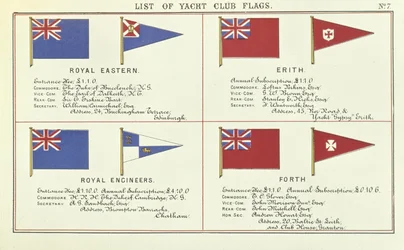 LIST OF YACHT CLUB FLAGS.
No 7
ROYAL EASTERN.
Entrance Fee £1.1.0.
COMMODORE. The Duke of Buccleuch, K.G.
VICE-COM. The Earl of Dalkeith, K.T.
REAR-COM.
SECRETARY. William Carmichael, Esq
Address, 24, Buckingham Terrace,
Edinburgh.
ERITH.
Annual Subscription, £1.1.0
COMMODORE. Loftus Perkins, Esq.
VICE-COM. Brown, Esq.
REAR-COM. Stanley Esq.
SECRETARY. Esq
Address, Road &
Yacht "Gypsy" Erith.
ROYAL ENGINEERS.
Entrance Fee £1.10.0. Annual Subscription, £4.10.0
COMMODORE. H.R.H. The Duke of Cambridge, K.G.
SECRETARY. Esq
Address, Brompton Barracks,
Chatham.
FORTH
Entrance Fee £1.1.0 Annual Subscription £0.10.6.
COMMODORE. Esq.
VICE-COM. John Esq.
REAR-COM. John Mitchell Esq.
HON. SEC. Andrew Esq.
Address, 20, Baltic St. Leith,
and Club House, Granton.